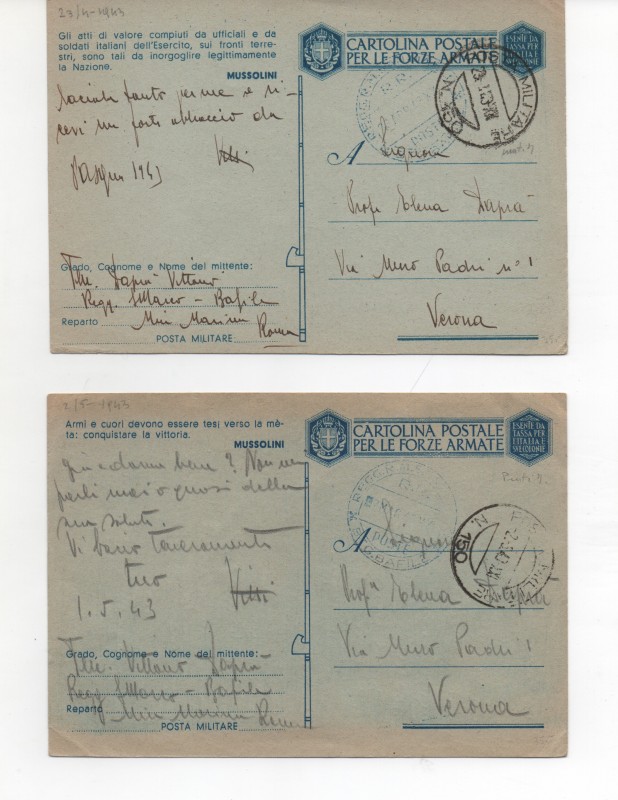 23/4-1943
Gli atti di valore compiuti da ufficiali e da
soldati italiani dell'Esercito, sui fronti terre-
stri, sono tali da inorgoglire legittimamente
la Nazione.
MUSSOLINI
tanto per me e ri-
cevi un forte abbraccio da
Pasqua 1943 Vitti
Grado, Cognome e Nome del mittente:
Tte. Daprà Vittorio
Regg. S.Marco - Bafile
Reparto Mini Marina Roma
POSTA MILITARE
CARTOLINA POSTALE
PER LE FORZE ARMATE
ESENTE DA
TASSA PER
L'ITALIA E
SUE COLONIE
MILITARE
A Signora
Prof. Elena Daprà
Via Muro Padri n° 1
Verona
2/5-1943
Armi e cuori devono essere tesi verso la mè-
ta: conquistare la vittoria.
MUSSOLINI
bene? Non mi
parli mai o quasi della
tua salute.
Vi bacio teneramente
tuo Vitti
1.5.43
Grado, Cognome e Nome del mittente:
Tte. Vittorio Daprà
Regg S.Marco - Bafile
Reparto Mini Marina Roma
POSTA MILITARE
CARTOLINA POSTALE
PER LE FORZE ARMATE
ESENTE DA
TASSA PER
L'ITALIA E
SUE COLONIE
N. 150
A Signora
Prof.ª Elena Daprà
Via Muro Padri 1
Verona